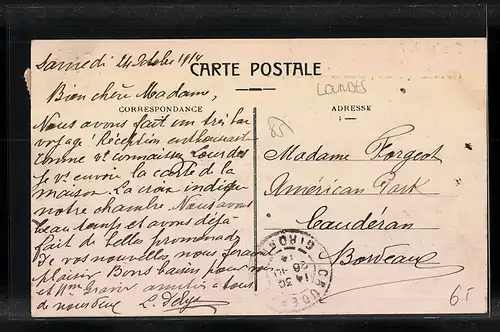 Samedi 24 Octobre 1914
CARTE POSTALE
LOURDES
Bien chère Madame,
CORRESPONDANCE
ADRESSE
85
Nous avons fait un très bon
voyage. Réception enthousiaste
comme vs connaissez Lourdes
je vs envoie la carte de la
maison. La croix indique
notre chambre. Nous avons
beau temps et avons déjà
fait de belles promenades
De vos nouvelles nous feraient
plaisir. Bons baisers pour vous
et Mme amitiés à tous
de nous deux
Madame Forgeot
Américan Park
Caudéran
Bordeaux
CAUDERAN
GIRONDE
14 30
26-10
14
65